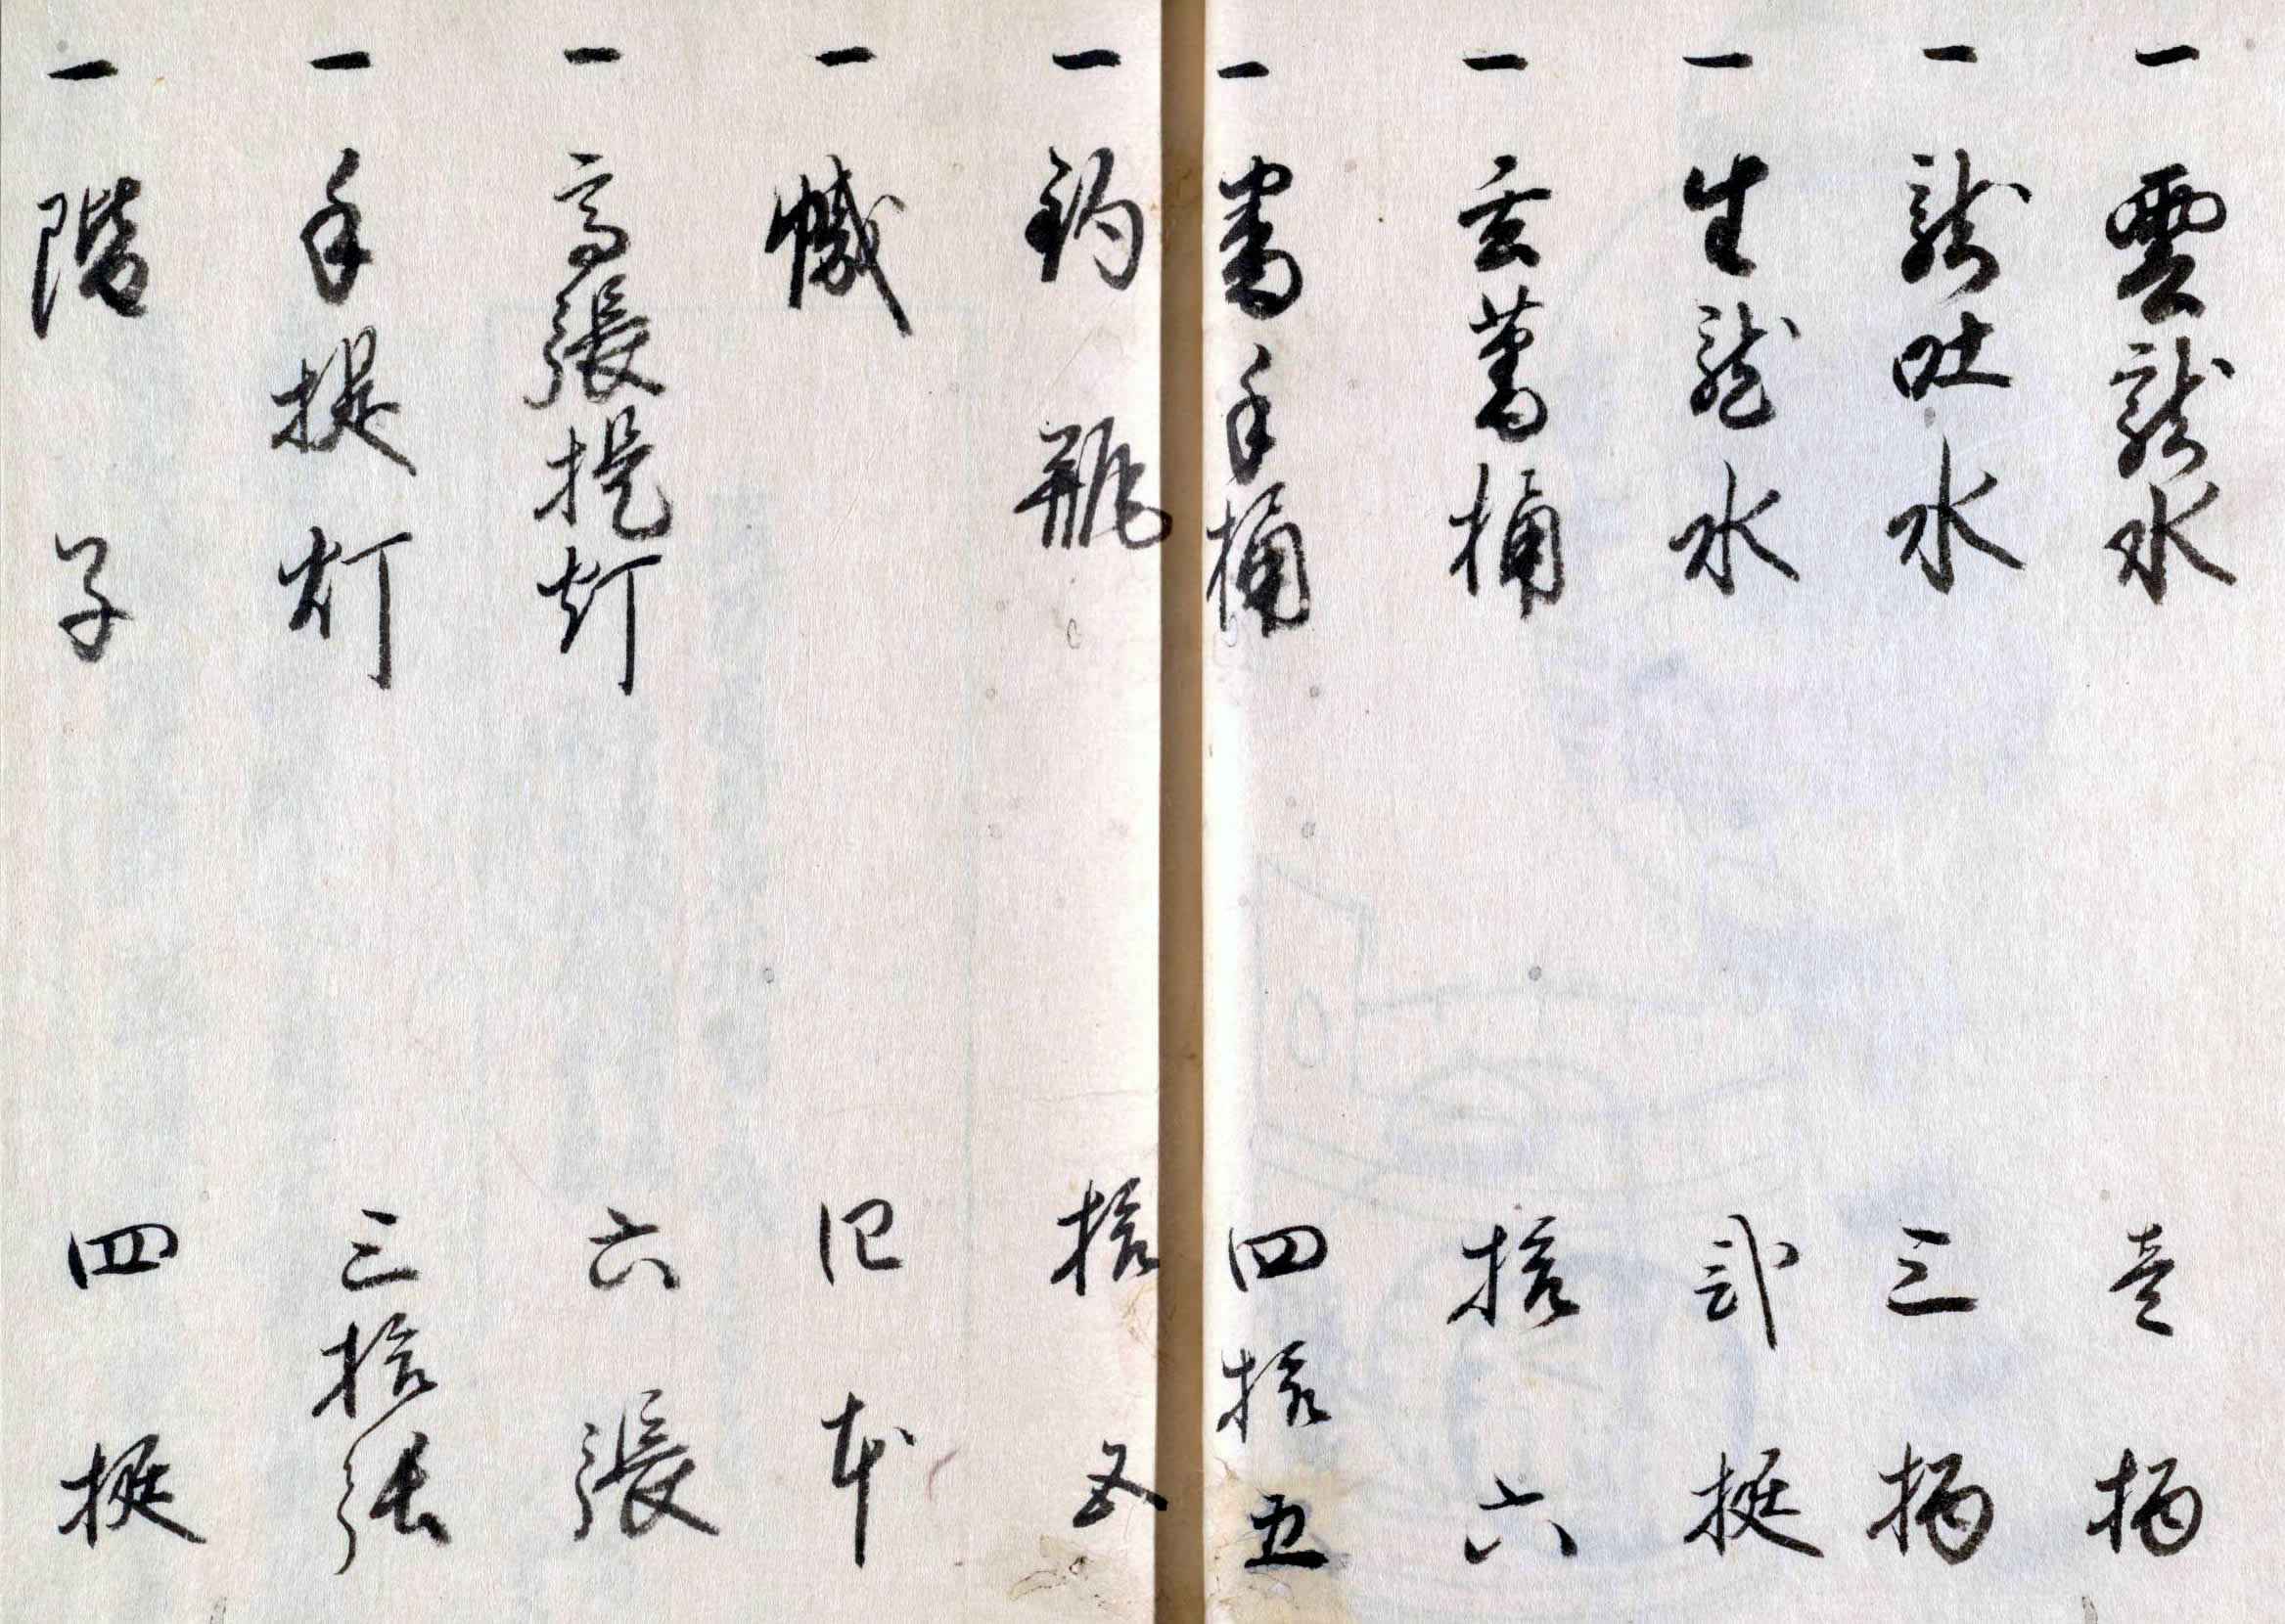 一雲龍水 壱柄
一龍吐水 三柄
一生龍水 弐挺
一玄蕃桶 拾六
一番手桶 四拾五
一釣瓶 拾五
一幟 四本
一高張提灯 六張
一手提灯 三拾張
一階子 四挺